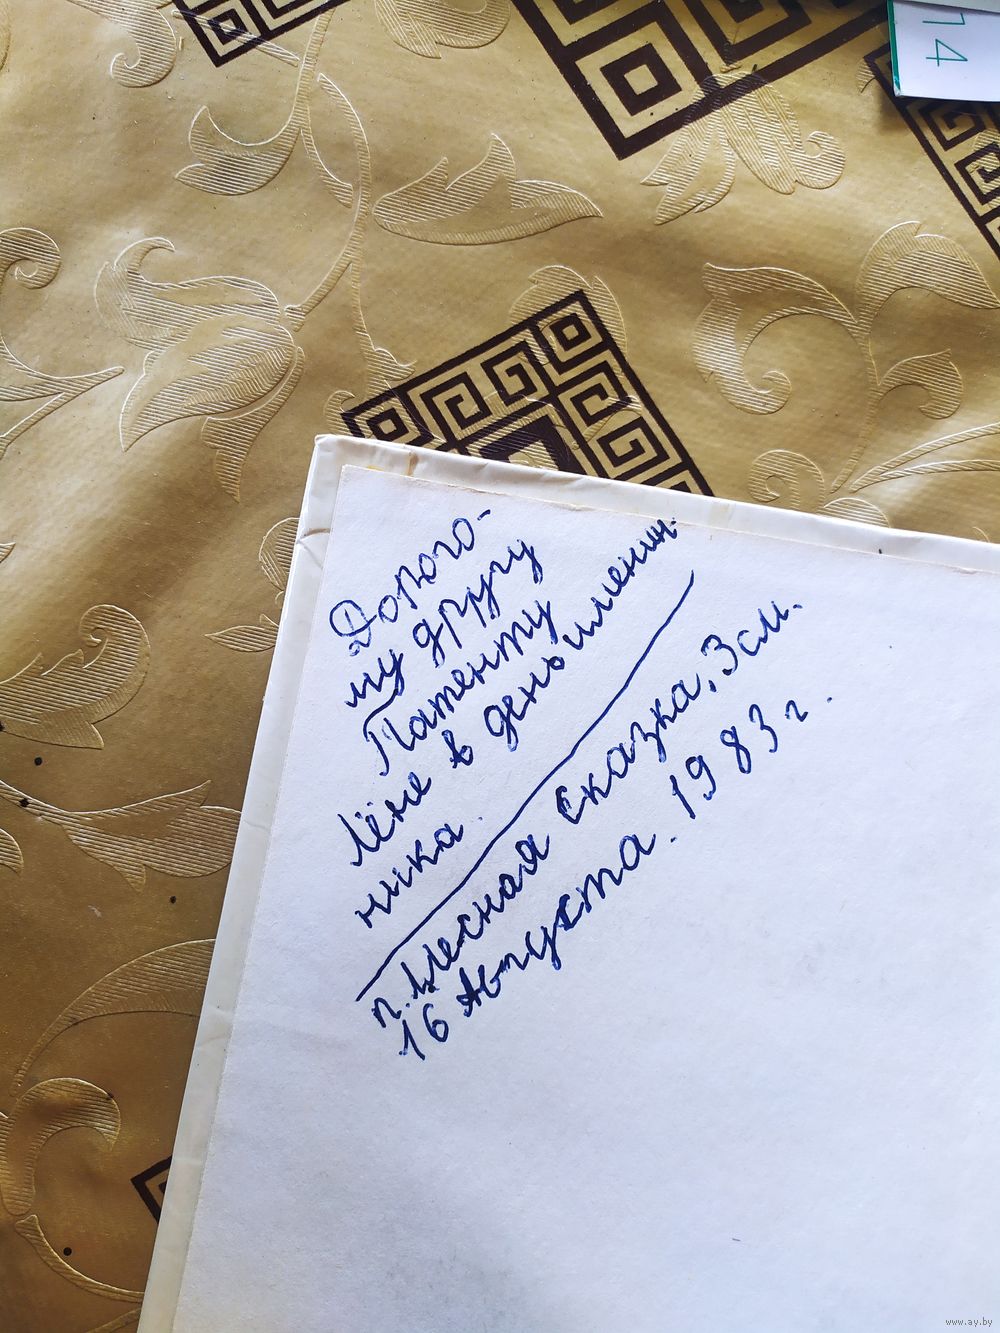 Дорого-
му другу
Патенту
Лёне в день имени
ника.
п. Лесная сказка, 3 см.
16 Августа. 1983 г.
14
www.ay.by